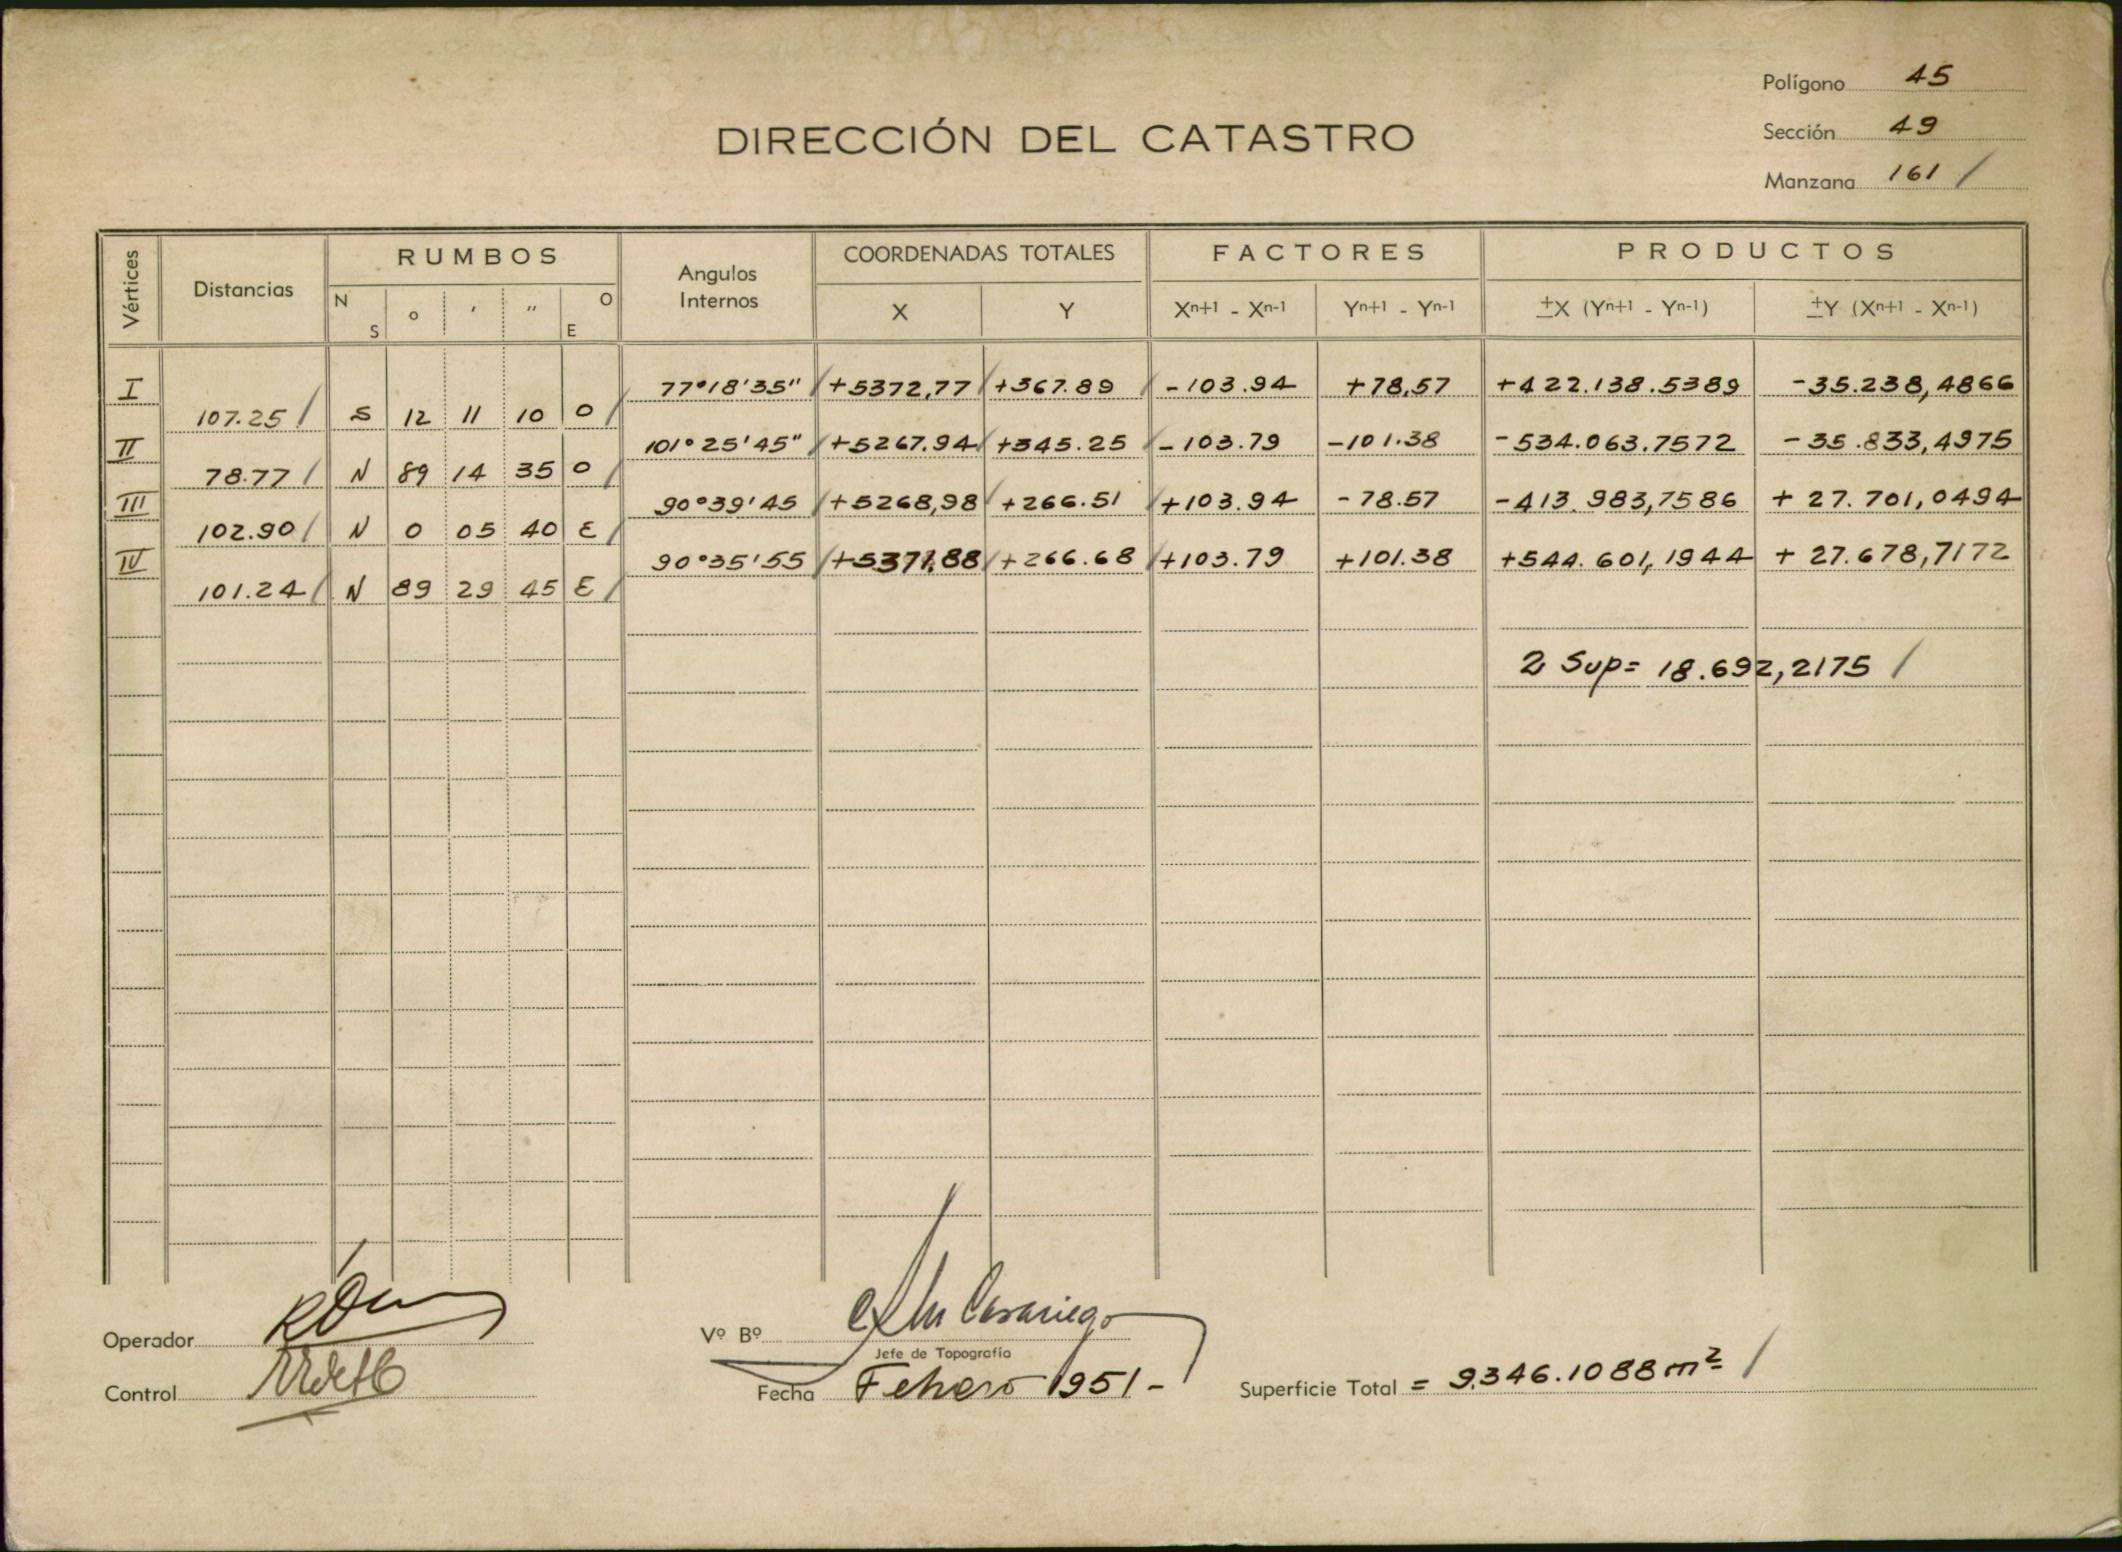 Polígono 45
DIRECCIÓN DEL CATASTRO
Sección 49
Manzana 161 /
Vértices Distancias RUMBOS Angulos Internos COORDENADAS TOTALES FACTORES PRODUCTOS
N S o ' " O E X Y Xn+1 - Xn-1 Yn+1 - Yn-1 ±X (Yn+1 - Yn-1) ±Y (Xn+1 - Xn-1)
I 77°18'35" / +5372,77 / +367.89 / -103.94 +78,57 +422.138.5389 -35.238,4866
107.25 / S 12 11 10 O /
II 101°25'45" / +5267.94 / +345.25 / -103.79 -101.38 -534.063.7572 -35.833,4975
78.77 / N 89 14 35 O /
III 90°39'45 / +5268,98 / +266.51 / +103.94 -78.57 -413.983,7586 +27.701,0494
102.90 / N 0 05 40 E /
IV 90°35'55 / +5371,88 / +266.68 / +103.79 +101.38 +544.601,1944 +27.678,7172
101.24 / N 89 29 45 E /
2 Sup= 18.692,2175 /
Operador
Vº Bº Casariego
Jefe de Topografía
Control
Fecha Febrero 1951-
Superficie Total = 9.346.1088 m² /